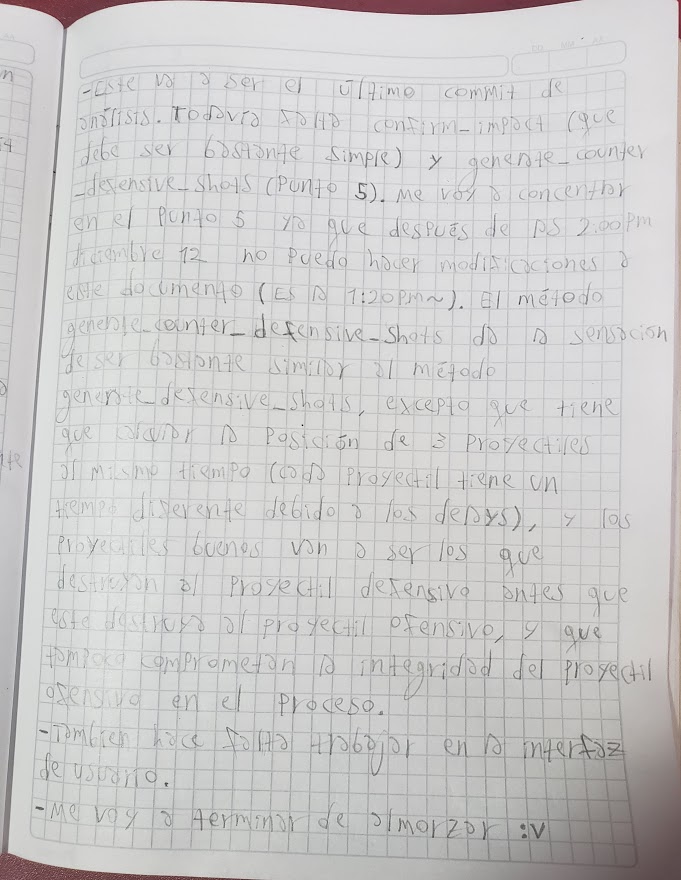 -Este va a ser el último commit de
análisis. Todavía falta confirm-impact (que
debe ser bastante simple) y generate_counter
_defensive_shots (Punto 5). Me voy a concentrar
en el Punto 5 ya que después de las 2:00pm
diciembre 12 no puedo hacer modificaciones a
este documento (Es la 1:20pm~). El método
generate_counter_defensive_shots da la sensación
de ser bastante similar al método
generate_defensive_shots, excepto que tiene
que la posición de 3 proyectiles
al mismo tiempo (cada proyectil tiene un
tiempo diferente debido a los delays), y los
proyectiles buenos van a ser los que
destruyan al proyectil defensivo antes que
este destruya al proyectil ofensivo, y que
tampoco comprometan la integridad del proyectil
ofensivo en el proceso.
-Tambien hace falta trabajar en la interfaz
de usuario.
-Me voy a terminar de almorzar :v